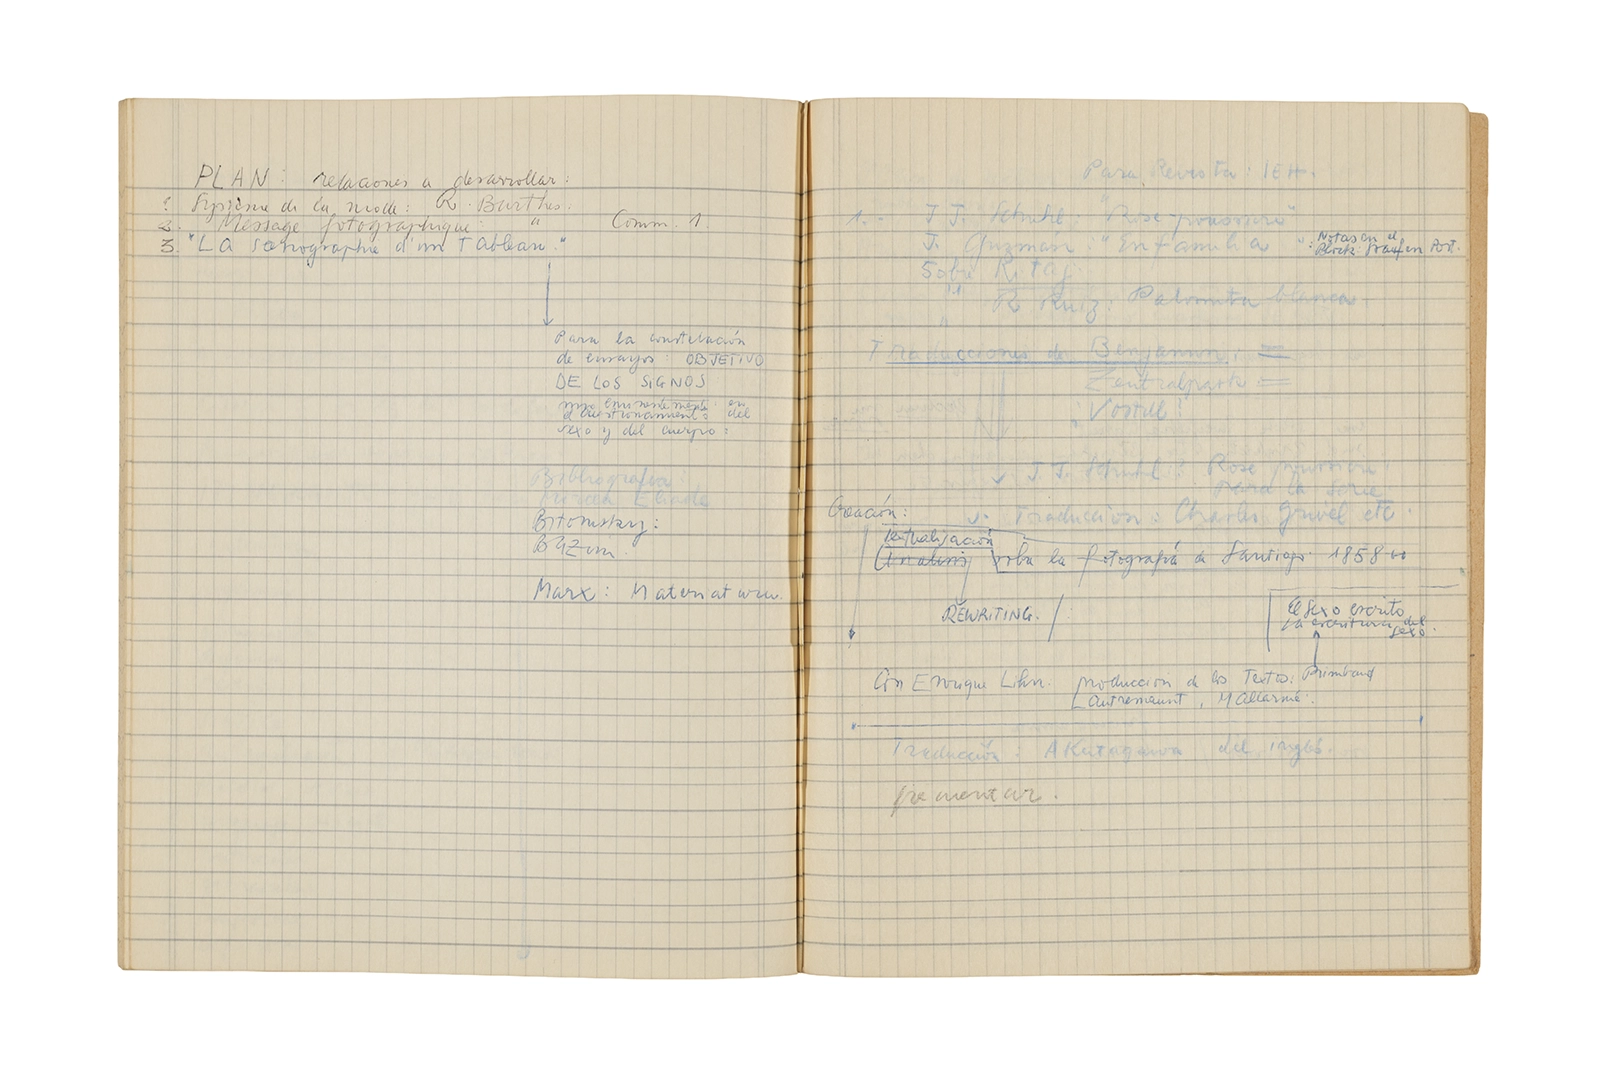 PLAN: relaciones a desarrollar:
1. Système de la mode: R. Barthes.
2. Message fotographique " Comm. 1.
3. "La scenographie d'un Tableau."
Para la constelación
de ensayos: OBJETIVO
DE LOS SIGNOS
eminentemente en
el cuestionamiento del
sexo y del cuerpo:
Bibliografia:
Mircea Eliade
Bitomsky:
BAZin.
Marx:
Para Revista: IEH.
1.- J.J. Schuhl "Rose poussiere"
J. Guzmán: "En familia" : Notas en el
Block:
Sobre
" R Ruiz: Palomita blanca
Traducciones de Benjamin: =
Zentralpark =
" Vostell:
J.J. Schuhl: Rose poussiere
para la serie
Traducción: Charles Grivel etc.
Creación:
Textualización
(Analisis) sobre la fotografía de Santiago 1858
REWRITING. /:
El sexo escrito
La escritura del
sexo.
Con Enrique Lihn. producción de los Textos: Rimbaud
Lautremaunt, Mallarmé.
Traducción: AKutagawa del inglés.